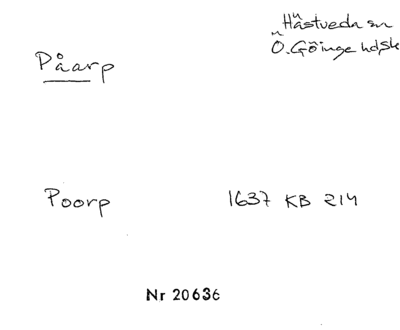 Hästveda sn
Ö. Göinge hdsk
Påarp
Poorp 1637 KB 214
Nr 20636